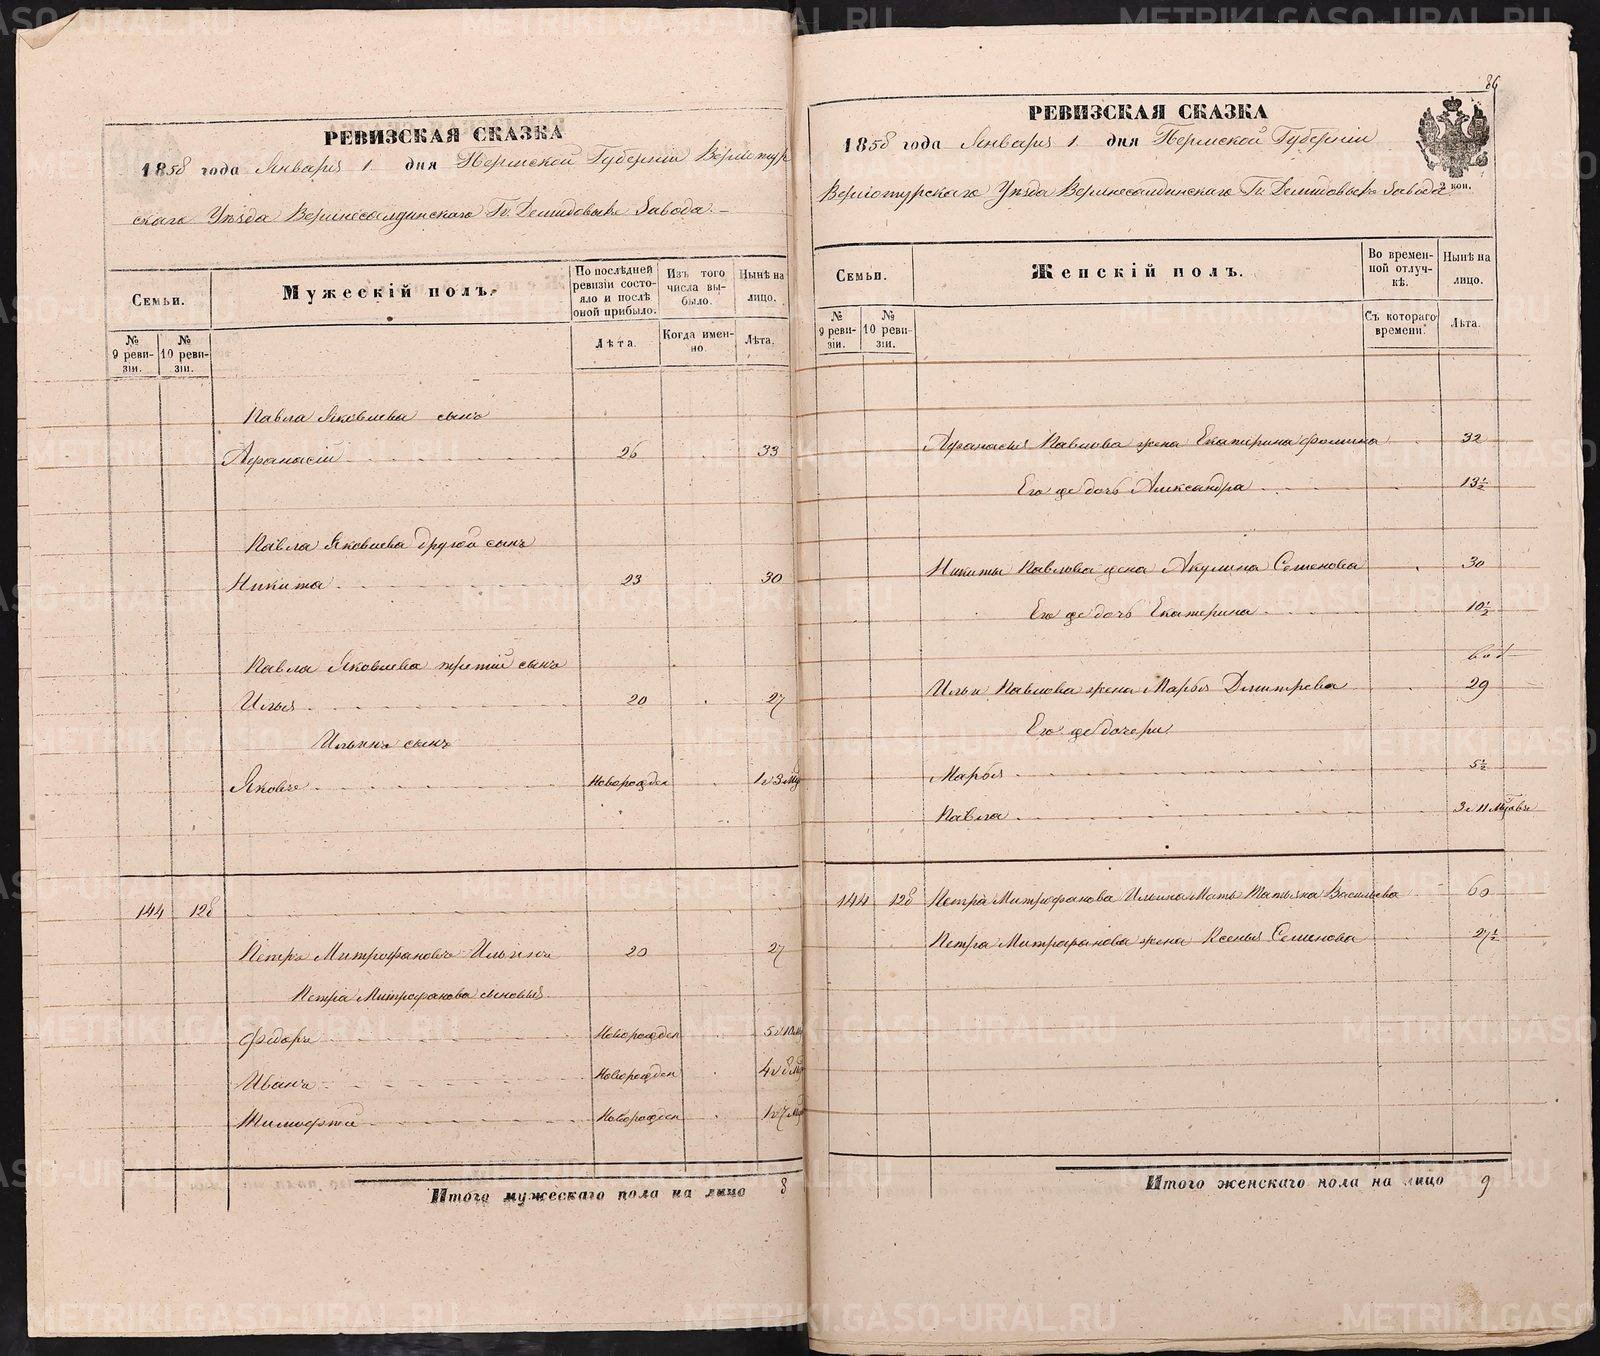 РЕВИЗСКАЯ СКАЗКА
1858 года Января 1. дня Пермской Губернiи Верхотур
скаго Уѣзда Верхнесалдинскаго Гг. Демидовыхъ Завода.
Семьи.
Мужескiй полъ.
По послѣдней ревизiи состояло и послѣ оной прибыло.
Изъ того числа выбыло.
Нынѣ на лицо.
№ 9 ревизiи.
№ 10 ревизiи.
Лѣта.
Когда именно.
Лѣта.
Павла Яковлева сынъ
Афанасiй 26 33
Павла Яковлева другой сынъ
Никита 23 30
Павла Яковлева третiй сынъ
Илья 20 27
Ильинъ сынъ
Яковъ Новорожден 1 и 3 мѣ
144 128
Петръ Митрофановъ Ильинъ 20 27
Петра Митрофанова сыновья
Федоръ Новорожден 5 и 10 м
Иванъ Новорожден 4 и 8 мѣ
Тимофей Новорожден 1 и 7 мѣ
Итого мужескаго пола на лицо 8
86
РЕВИЗСКАЯ СКАЗКА
1858 года Января 1. дня Пермской Губернiи
Верхотурскаго Уѣзда Верхнесалдинскаго Гг. Демидовыхъ Завода
2 коп.
Семьи.
Женскiй полъ.
Во временной отлучкѣ.
Нынѣ на лицо.
№ 9 ревизiи.
№ 10 ревизiи.
Съ котораго времени.
Лѣта.
Афанасья Павлова жена Екатерина Фомина 32
Его же дочь Александра 13½
Никиты Павлова жена Акулина Семенова 30
Его же дочь Екатерина 10½
Ильи Павлова жена Марья Дмитрева 29
Его же дочери
Марья 5½
Павла 3 и 11 мѣсяцовъ
144 128 Петра Митрофанова Ильина Мать Татьяна Васильева 60
Петра Митрофанова жена Ксенья Семенова 27½
Итого женскаго пола на лицо 9
METRIKI.GASO-URAL.RU